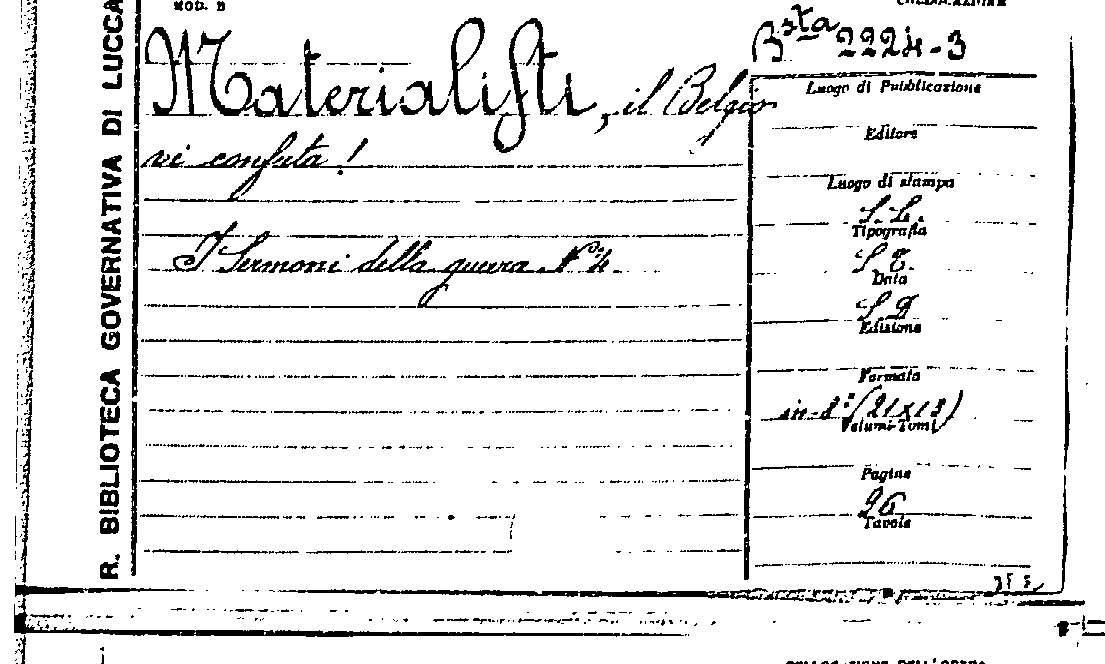 R. BIBLIOTECA GOVERNATIVA DI LUCCA
MOD. B
Bsta 2224-3
Materialisti, il Belgio
vi confuta!
I Sermoni della guerra Nº 4.
Luogo di Pubblicazione
Editore
Luogo di stampa
S. L.
Tipografia
S. T.
Data
S D
Edizione
Formato
in-8º (21x13)
Volumi-Tomi
Pagine
26
Tavole